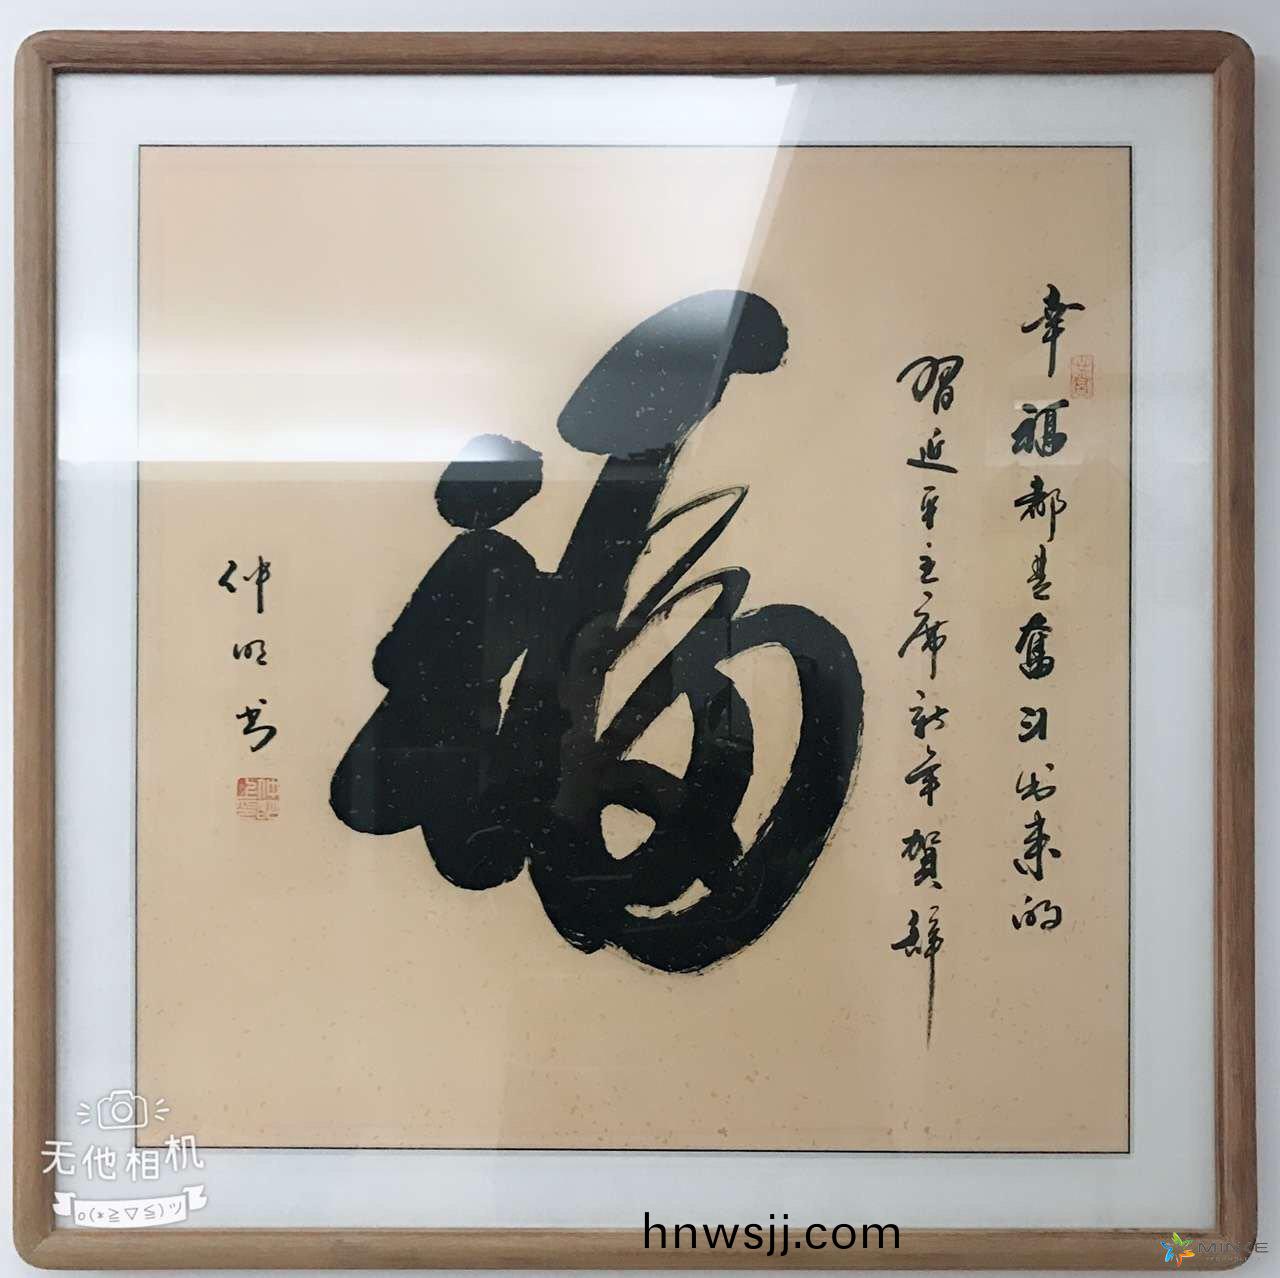 幸福都是奮斗出来的
習近平主席新年賀辞
福
仲明书
无他相机
o(*≧▽≦)ツ
hnwsjj.com
MINKE